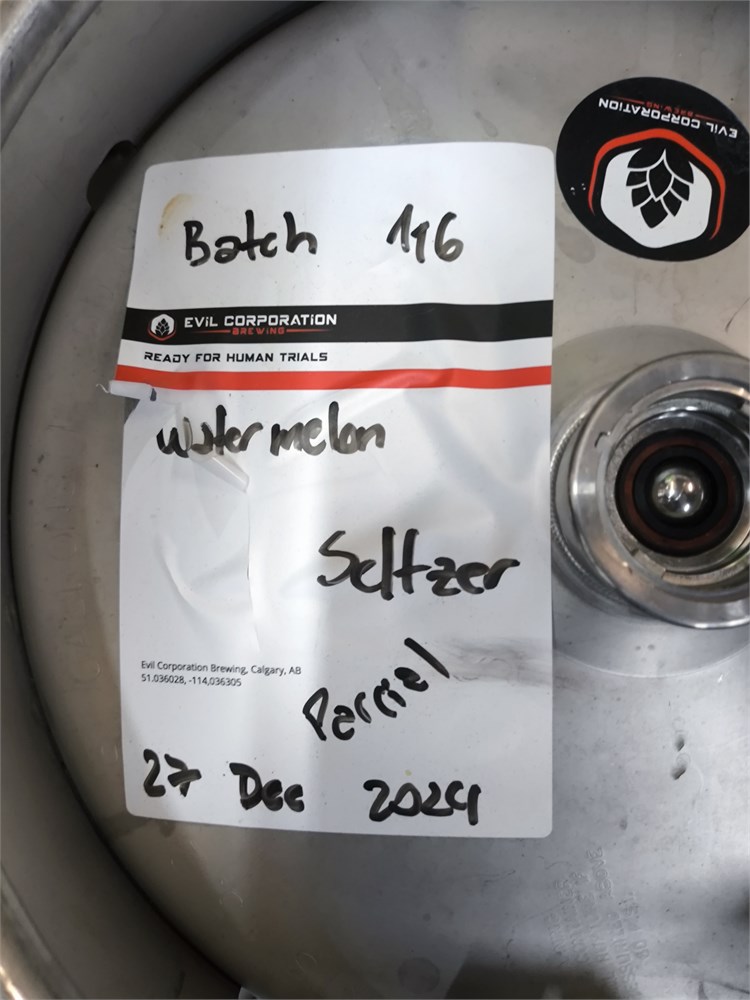 Batch 116
EViL CORPORATION
BREWiNG
READY FOR HUMAN TRIALS
Watermelon
Seltzer
Evil Corporation Brewing, Calgary, AB
51.036028, -114,036305
Parciel
27 Dec 2024
EViL CORPORATION
BREWiNG